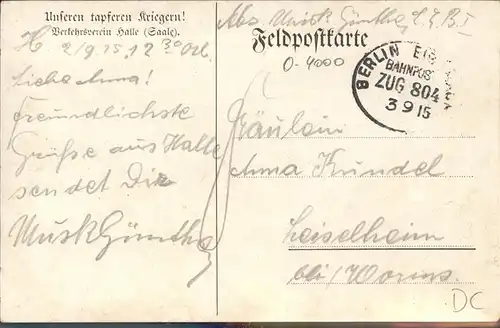 Unseren tapferen Kriegern!
Verkehrsverein Halle (Saale).
H. 2/9.15, 12 30
Liebe Anna!
Freundlichste
Grüße aus Halle
sendet Dir
Musk Günther
Abs. Musk Günther,
Feldpostkarte
0-4000
BERLIN
BAHNPOST
ZUG 804
3 9 15
Fräulein
Anna Kundel
Leiselheim
bei/Worms.
DC